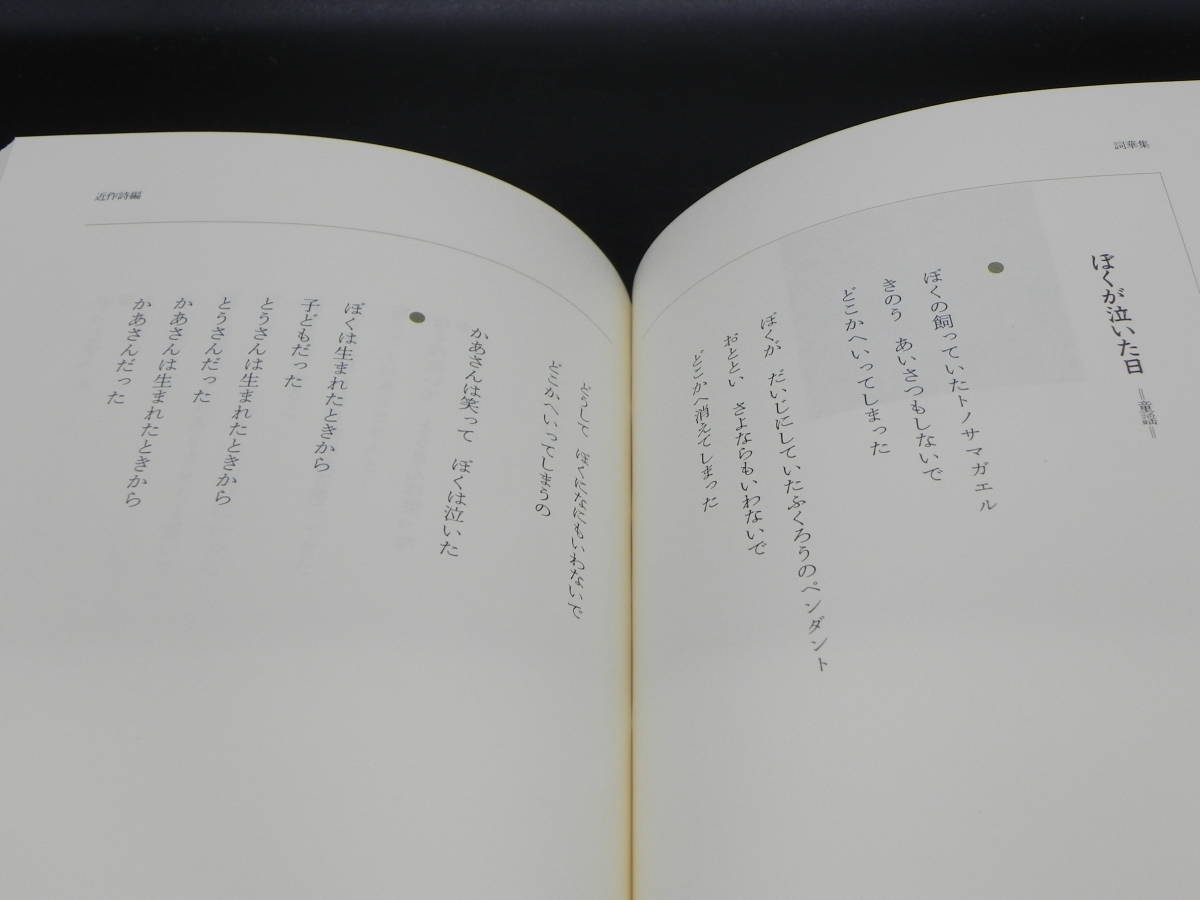 詞華集
ぼくが泣いた日
＝童謡＝
●
ぼくの飼っていたトノサマガエル
きのう　あいさつもしないで
どこかへいってしまった
ぼくが　だいじにしていたふくろうのペンダント
おととい　さよならもいわないで
どこかへ消えてしまった
どうして　ぼくになにもいわないで
どこかへいってしまうの
かあさんは笑って　ぼくは泣いた
●
ぼくは生まれたときから
子どもだった
とうさんは生まれたときから
とうさんだった
かあさんは生まれたときから
かあさんだった
近作詩編